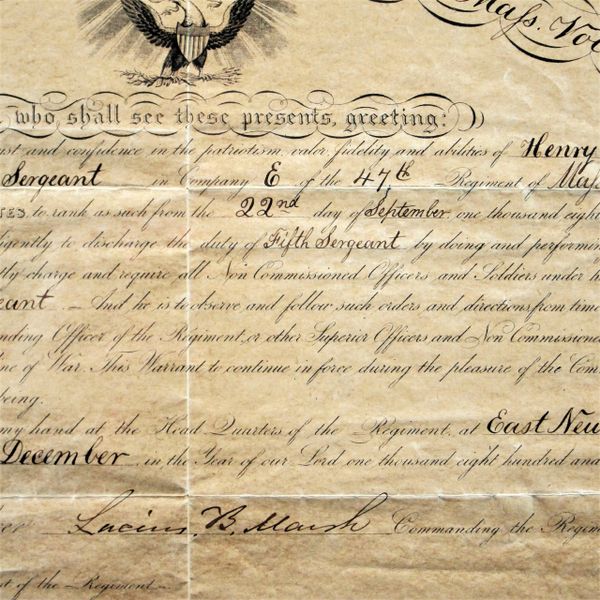 Mass. Vo
who shall see these presents, greeting:
ust and confidence in the patriotism, valor, fidelity and abilities of Henry
Sergeant in Company E of the 47th Regiment of Mass
TES, to rank as such from the 22nd day of September one thousand eigh
ligently to discharge the duty of Fifth Sergeant by doing and performin
tly charge and require all Non Commissioned Officers and Soldiers under h
eant — And he is to observe and follow such orders and directions from time
nding Officer of the Regiment, or other Superior Officers and Non Commissione
ne of War. This Warrant to continue in force during the pleasure of the Com
being.
my hand at the Head Quarters of the Regiment, at East New
December in the Year of our Lord one thousand eight hundred and
Lucius B. Marsh Commanding the Regim
t of the Regiment